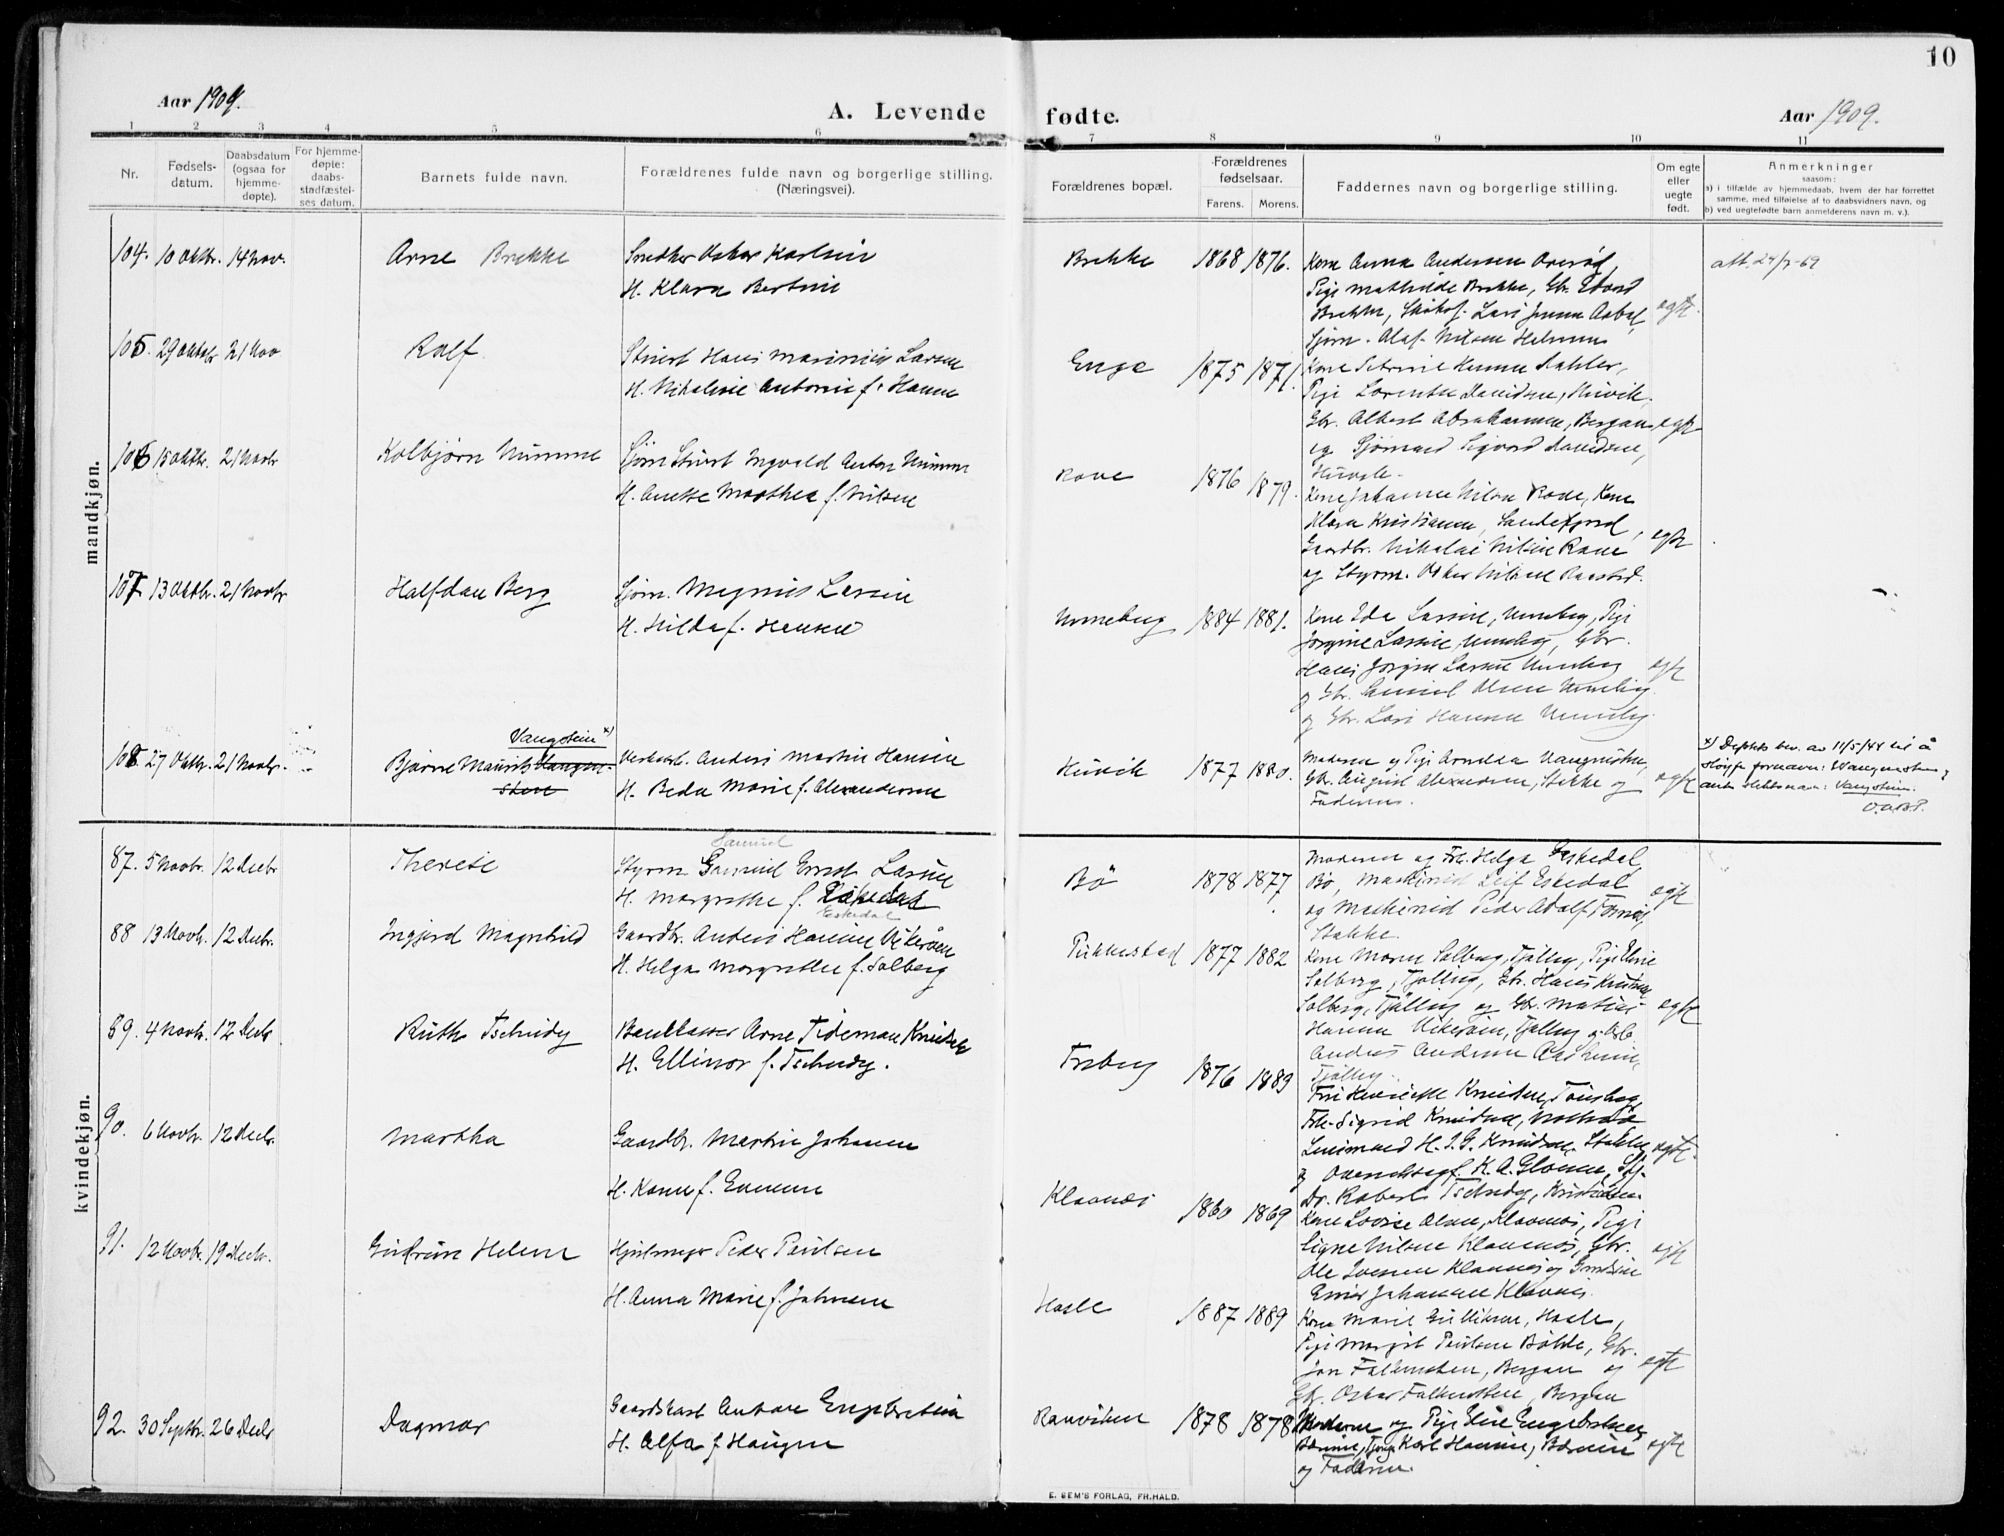 10
Aar 1909.
A. Levende fødte.
Aar 1909.
1 2 3 4 5 6 7 8 9 10 11
Nr.
Fødsels-
datum.
Daabsdatum
(ogsaa for
hjemme-
døpte).
For hjemme-
døpte:
daabs-
stadfæstel-
ses datum.
Barnets fulde navn.
Forældrenes fulde navn og borgerlige stilling.
(Næringsvei).
Forældrenes bopæl.
Forældrenes
fødselsaar.
Farens. Morens.
Faddernes navn og borgerlige stilling.
Om egte
eller
uegte
født.
Anmerkninger
saasom:
a) i tilfælde av hjemmedaab, hvem der har forrettet
samme, med tilføielse af to daabsvidners navn, og
b) ved uegtefødte barn anmelderens navn m. v.).
mandkjøn.
104. 10 Oktbr. 14 Nov.
Arne Brekke
Snedker Oskar Karlsen
H. Klara Bertine
Brekke 1868 1876.
Kone Anna Andersen
Pige Mathilde Brekke, Gbr.
Brekke,
egte.
att. 24/9-69
105. 29 Oktobr 21 Nov
Rolf.
Stuert Hans Marinius Larsen
H. Nikoline Antonie f. Hansen
Enge 1875 1871.
Pige Lorentse Davidsen, Huvik,
Gbr. Albert Abrahamsen, Bergan
og Sjømand Sigvard Davidsen,
Huvik.
egte
106 15 Oktbr. 21 Novbr
Kolbjørn Numme
Sjøm. Stuert Ingvald Anton Numme
H. Anette Marthea f. Nilsen
Rove 1876 1879.
Kone Johanne Nilsen Rove, Kone
Klara Kristiansen, Sandefjord,
Gaardbr. Nikolai Nilsen Rove
og Styrm. Oskar Raastad.
egte
107 13 Oktbr. 21 Novbr
Halfdan Berg
Sjøm. Magnus Larsen
H. Hilda f. Hansen
Unneberg 1884 1881.
Kone Ida Larsen, Unneberg, Pige
Jørgine Larsen, Unneberg, Gbr.
Hans Jørgen Larsen Unneberg
og Gbr. Samuel Olsen Unneberg.
og Gbr. Lars Hansen Unneberg.
egte
108 27 Oktbr. 21 Novbr.
Vangstein x)
Bjarne Maurits Vangen-
sten
Verkarb. Anders Martin Hansen
H. Beda Marie f. Alexandersen
Huvik 1877 1880.
Moderen og Pige Arndea
Gbr. August Alexandersen, Stokke og
Faderen.
egte
x) Depts bev. av 11/5/44 til å
sløyfe fornavn: Vangensten og
anta slektsnavn: Vangstein.
kvindekjøn.
87. 5 Novbr. 12 Decbr
Therese
Samuel
Styrm Gamuel Ernst Larsen
H. Margrethe f.
Eskedal
Bø 1878 1877
Moderen og Frk. Helga Eskedal
Bø, Maskinist Leif Eskedal
og Maskinist Peder Adolf
Stokke.
egte
88 13 Novbr. 12 Decbr.
Ingjerd Magnhild
Gaardbr. Anders Hansen Vikerøen
H. Helga Margrethe f. Solberg
Pukkestad 1877 1882
Kone Maren Solberg, Tjølling, Pige Elise
Solberg, Tjølling, Gbr. Hans Knutsen
Solberg, Tjølling og Gbr. Matias
Hansen Vikerøen, Tjølling og
Anders Andersen
Tjølling.
egte
89. 4 Novbr. 12 Decbr
Ruth Tschudy
Bankkasser Arne Tideman Knudsen
H. Ellinor f. Tschudy.
Freberg 1876 1889
Fru Henriette Knudsen, Tønsberg,
Frk. Sigrid Knudsen,
H. J. G. Knudsen, Stokke
og K. A. Glomsen,
Dr. Robert Tschudy,
egte.
90. 6 Novbr. 12 Decbr.
Martha
Gaardbr. Martin Johansen
H. Karen f. Evensen
Klavnæs 1860 1869
Kone Lovise Olsen, Klavenæs, Pige
Signe Nilsen Klavenæs, Gbr.
Ole Iversen Klavnæs og
Einar Johansen Klavnæs.
egte
91. 12 Novbr. 19 Decbr.
Gudrun Helene
Hjulmager Peder Paulsen
H. Anna Marie f. Johnsen
Hasle 1887 1889
Kone Marie Gulliksen, Hasle,
Pige Margit Paulsen Gbr.
Jon Falkensten, Bergan og
Gbr. Oskar Falkensten, Bergan
egte
92. 30 Septbr. 26 Decbr
Dagmar
Gaardskarl Anton Engebretsen
H. Alfa f. Haugen
Ranviken 1878 1878
Moderen og Pige Elise Engebretsen,
Karl Hansen,
og Faderen.
egte
E. SEM'S FORLAG, FR.HALD.